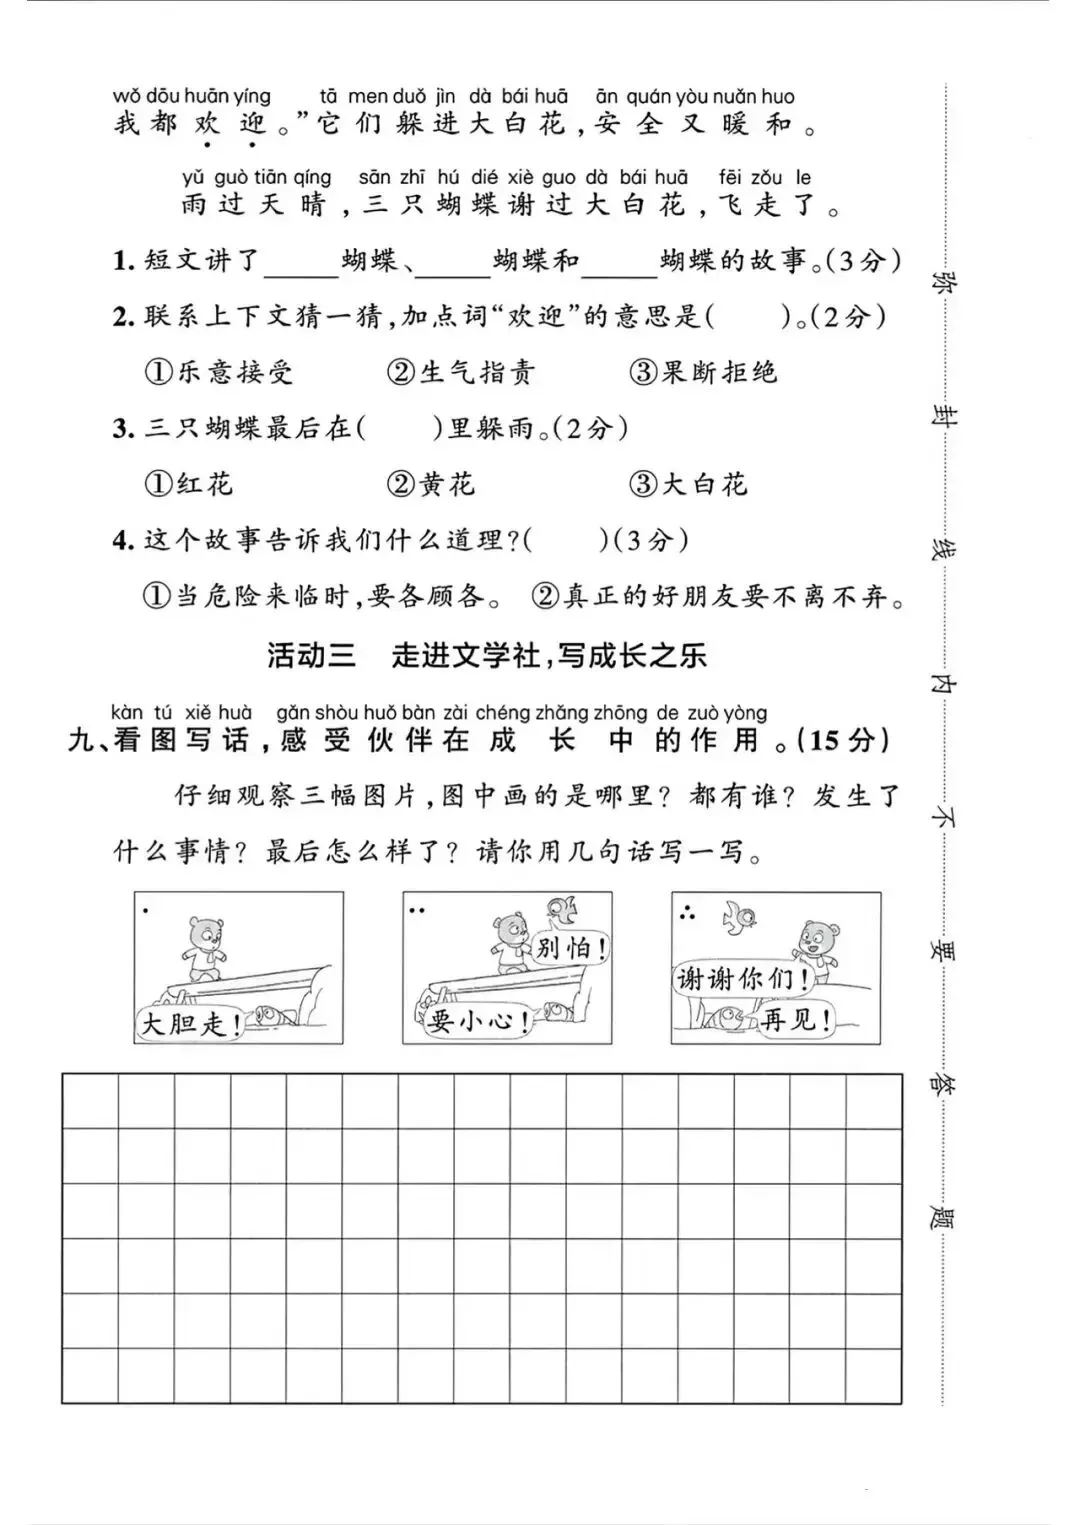 wǒ dōu huān yíng tā men duǒ jìn dà bái huā ān quán yòu nuǎn huo
我都欢迎。”它们躲进大白花,安全又暖和。
yǔ guò tiān qíng sān zhī hú dié xiè guo dà bái huā fēi zǒu le
雨过天晴,三只蝴蝶谢过大白花,飞走了。
1. 短文讲了_____蝴蝶、_____蝴蝶和_____蝴蝶的故事。(3分)
2. 联系上下文猜一猜,加点词“欢迎”的意思是( )。(2分)
①乐意接受 ②生气指责 ③果断拒绝
3. 三只蝴蝶最后在( )里躲雨。(2分)
①红花 ②黄花 ③大白花
4. 这个故事告诉我们什么道理?( )(3分)
①当危险来临时,要各顾各。 ②真正的好朋友要不离不弃。
活动三 走进文学社,写成长之乐
kàn tú xiě huà gǎn shòu huǒ bàn zài chéng zhǎng zhōng de zuò yòng
九、看图写话,感受伙伴在成长中的作用。(15分)
仔细观察三幅图片,图中画的是哪里?都有谁?发生了
什么事情?最后怎么样了?请你用几句话写一写。
大胆走!
别怕!
要小心!
谢谢你们!
再见!
弥封线内不要答题